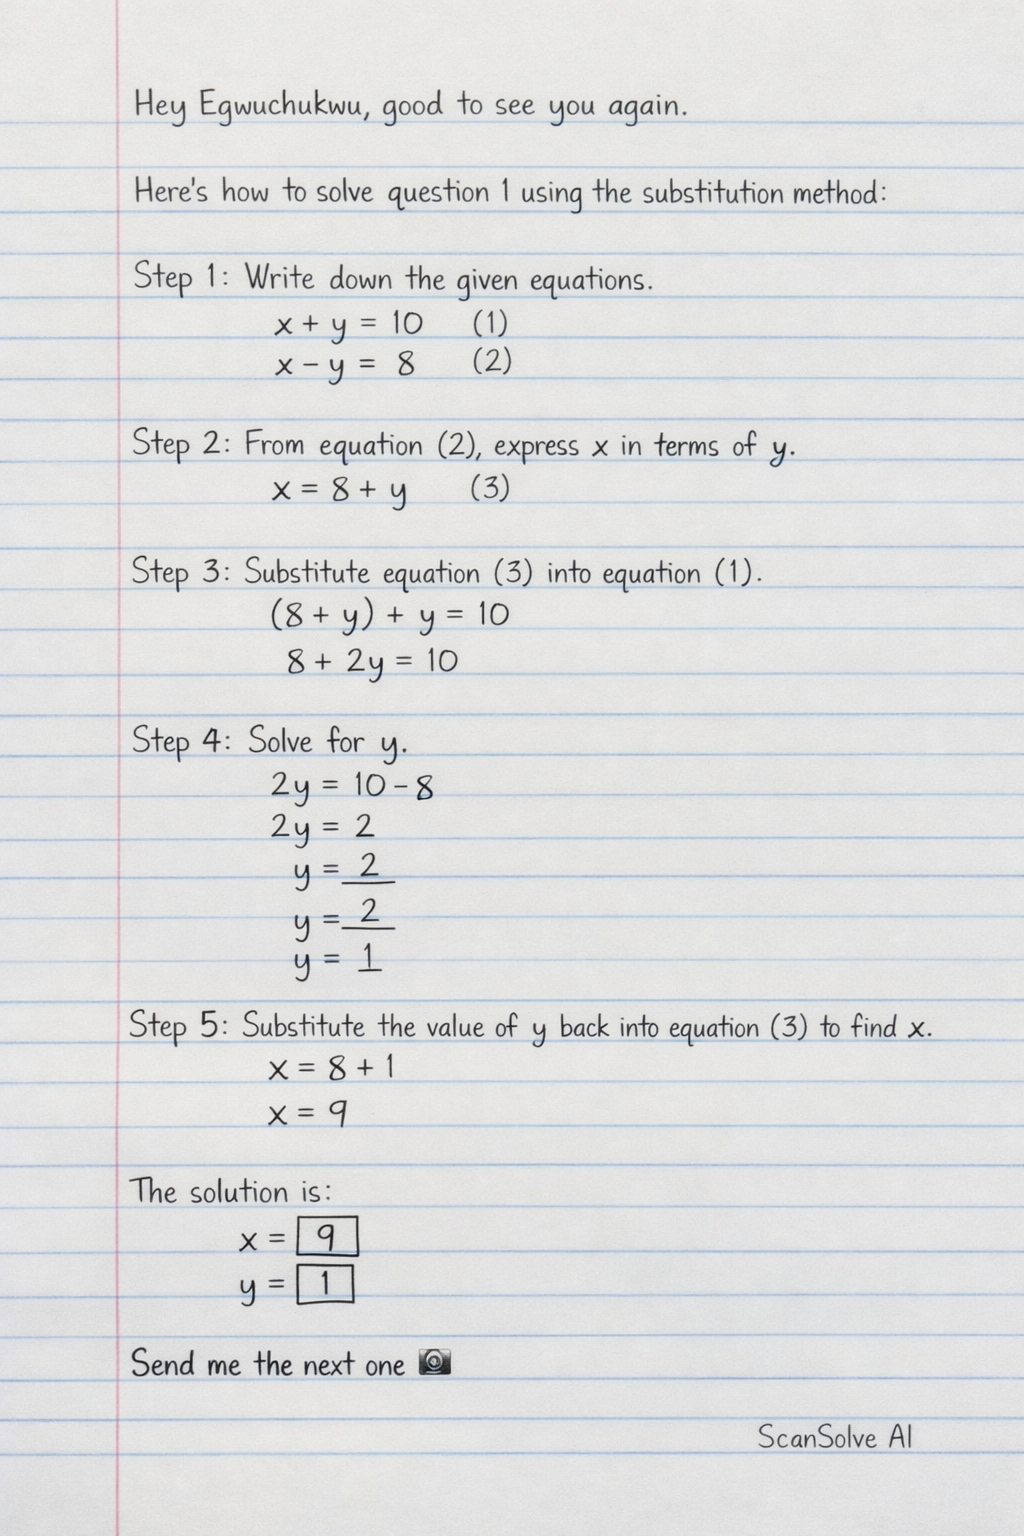 Hey Egwuchukwu, good to see you again.
Here's how to solve question 1 using the substitution method:
Step 1: Write down the given equations.
x + y = 10 (1)
x - y = 8 (2)
Step 2: From equation (2), express x in terms of y.
x = 8 + y (3)
Step 3: Substitute equation (3) into equation (1).
(8 + y) + y = 10
8 + 2y = 10
Step 4: Solve for y.
2y = 10 - 8
2y = 2
y = 2
y = 2
y = 1
Step 5: Substitute the value of y back into equation (3) to find x.
x = 8 + 1
x = 9
The solution is:
x = 9
y = 1
Send me the next one 📷
ScanSolve AI